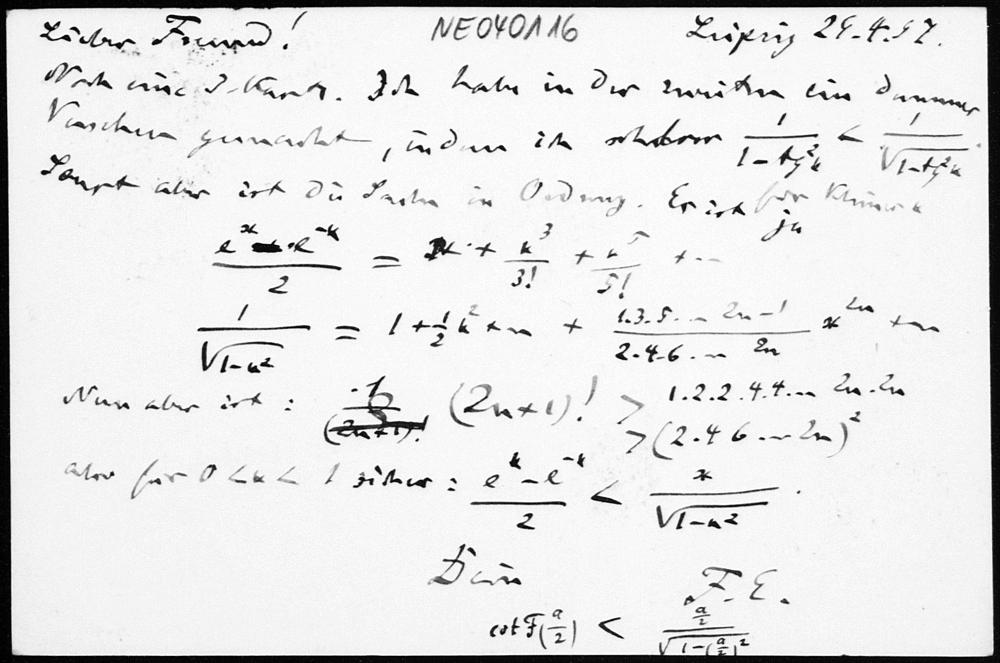 Lieber Freund! NE040116 Leipzig 29.4.97.
Noch eine 3. Karte. Ich habe in der zweiten ein dummes
Versehen gemacht, indem ich schrieb \frac{1}{1-tg^2x} < \frac{1}{\sqrt{1-tg^2x}}
Sonst aber ist die Sache in Ordnung. Es ist ja für kleine x
\frac{e^x - e^{-x}}{2} = x + \frac{x^3}{3!} + \frac{x^5}{5!} + ...
\frac{1}{\sqrt{1-x^2}} = 1 + \frac{1}{2}x^2 + ... + \frac{1.3.5...2n-1}{2.4.6...2n} x^{2n} + ...
Nun aber ist: (2n+1)! > 1.2.2.4.4... 2n.2n
> (2.4.6...2n)^2
also für 0 < x < 1 sicher: \frac{e^x - e^{-x}}{2} < \frac{x}{\sqrt{1-x^2}}.
Dein
F. E.
cot F(\frac{a}{2}) < \frac{\frac{a}{2}}{\sqrt{1-(\frac{a}{2})^2}}